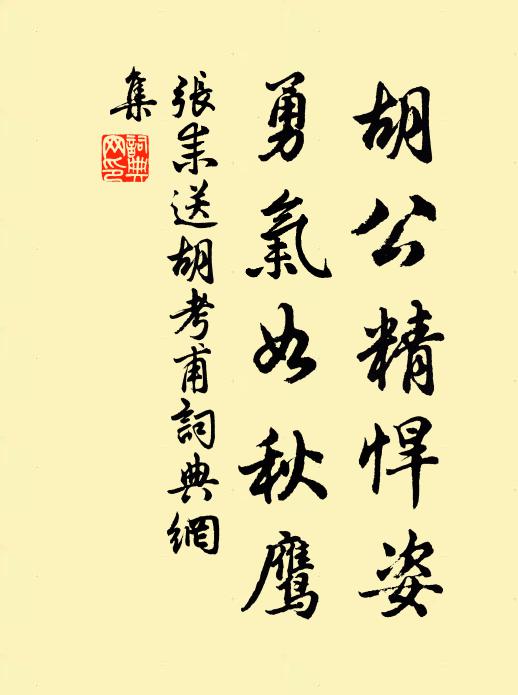 胡公精悍姿
勇氣如秋鹰
張耒送胡考甫詞典網
集
詞典网印